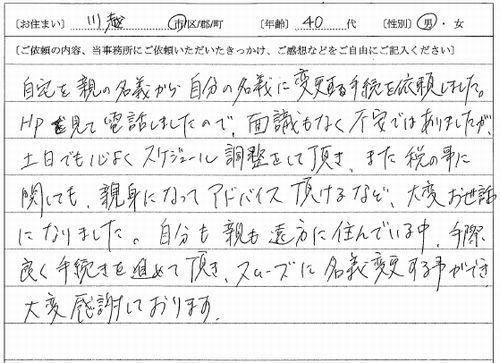 〔お住まい〕 川越 市/区/郡/町 〔年齢〕 40 代 〔性別〕 男・女
〔ご依頼の内容、当事務所にご依頼いただいたきっかけ、ご感想などをご自由にご記入ください〕
自宅を親の名義から自分の名義に変更する手続を依頼しました。
HPを見て電話しましたので、面識もなく不安ではありましたが、
土日でも心よくスケジュール調整をして頂き、また税の事に
関しても、親身になってアドバイス頂けるなど、大変お世話
になりました。自分も親も遠方に住んでいる中、手際
良く手続きを進めて頂き、スムーズに名義変更する事ができ
大変感謝しております。